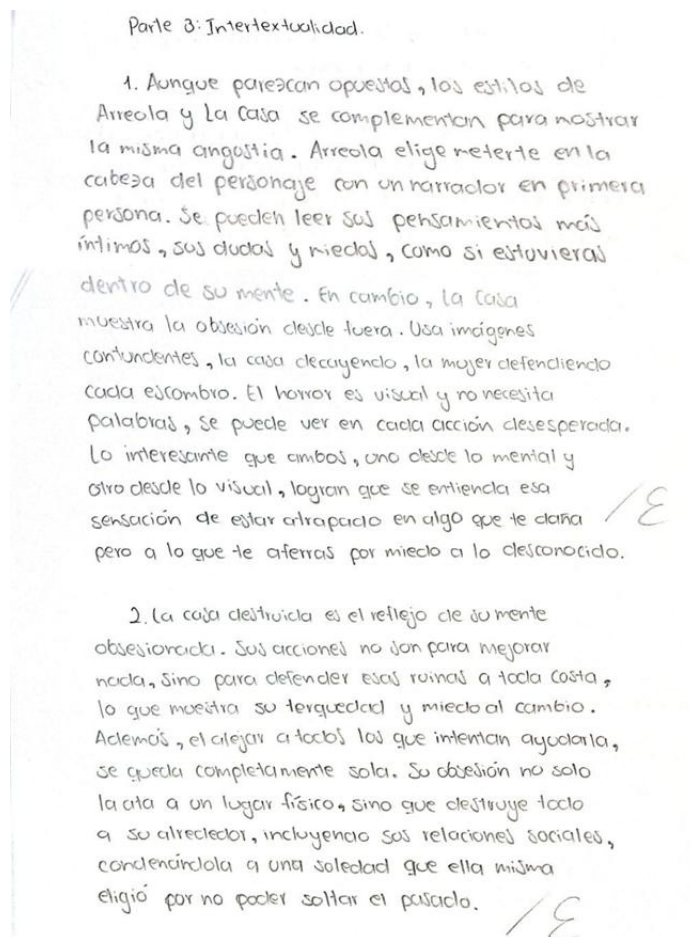 Parte 3: Intertextualidad.
1. Aunque parezcan opuestos, los estilos de
Arreola y La Casa se complementan para nostrar
la misma angostia. Arreola elige meterte en la
cabeza del personaje con un narrador en primera
persona. Se pueden leer sus pensamientos más
íntimos, sus dudas y miedos, como si estuvieras
dentro de su mente. En cambio, la Casa
muestra la obsesión desde fuera. Usa imágenes
contundentes, la casa decayendo, la mujer defendiendo
cada escombro. El horror es visual y no necesita
palabras, se puede ver en cada acción desesperada.
Lo interesante que ambos, uno desde lo mental y
otro desde lo visual, logran que se entienda esa
sensación de estar atrapado en algo que te daña
pero a lo que te aferras por miedo a lo desconocido.
2. La casa destruida es el reflejo de su mente
obsesionada. Sus acciones no son para mejorar
nada, sino para defender esas ruinas a toda costa,
lo que muestra su terquedad y miedo al cambio.
Además, el alejar a todos los que intentan ayudarla,
se queda completamente sola. Su obsesión no solo
la ata a un lugar físico, sino que destruye todo
a su alrededor, incluyendo sus relaciones sociales,
condenándola a una soledad que ella misma
eligió por no poder soltar el pasado.